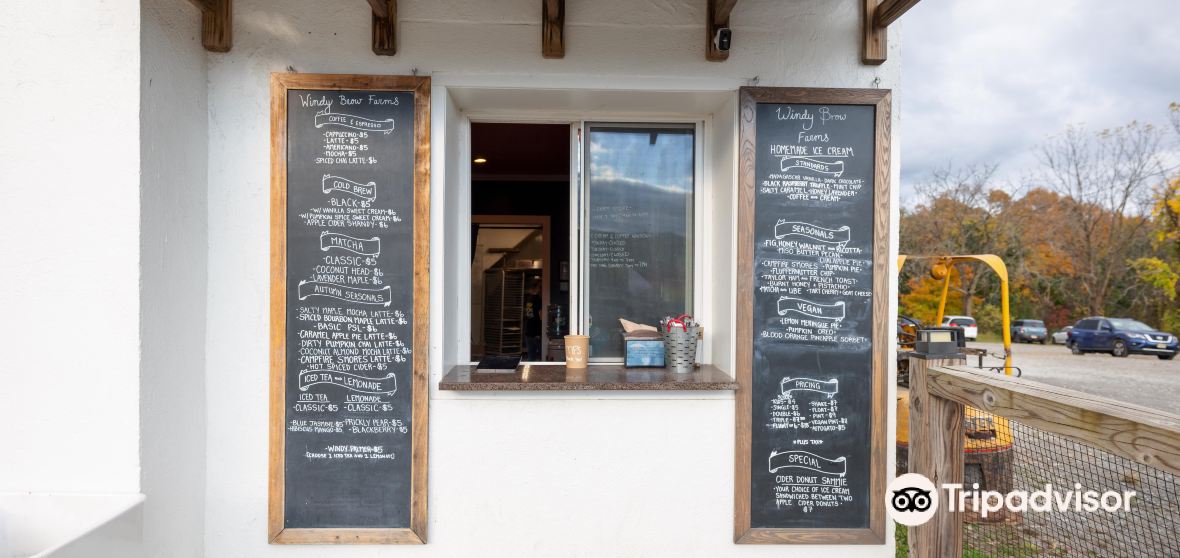 Windy Brow Farms
COFFEE & ESPRESSO
-CAPPUCCINO-$5
-LATTE-$5
-AMERICANO-$5
-MOCHA-$5
-SPICED CHAI LATTE-$6
COLD BREW
-BLACK-$5
-W/ VANILLA SWEET CREAM-$6
-W/ PUMPKIN SPICE SWEET CREAM-$6
-APPLE CIDER SHANDY-$6
MATCHA
-CLASSIC-$5
-COCONUT HEAD-$6
-LAVENDER MAPLE-$6
AUTUMN SEASONALS
-SALTY MAPLE MOCHA LATTE-$6
-SPICED BOURBON MAPLE LATTE-$6
-BASIC PSL-$6
-CARAMEL APPLE PIE LATTE-$6
-DIRTY PUMPKIN CHAI LATTE-$6
-COCONUT ALMOND MOCHA LATTE-$6
-CAMPFIRE SMORES LATTE-$6
-HOT SPICED CIDER-$5
ICED TEA LEMONADE
ICED TEA LEMONADE
-CLASSIC-$5 -CLASSIC-$5
-BLUE JASMINE-$5 -PRICKLY PEAR-$5
-HIBISCUS MANGO-$5 -BLACKBERRY-$5
-WINDY PALMER-$5
(CHOOSE 1 ICED TEA AND 1 LEMONADE)
Windy Brow
Farms
HOMEMADE ICE CREAM
STANDARDS
-MADAGASCAR VANILLA-DARK CHOCOLATE-
-BLACK RASPBERRY TRUFFLE-MINT CHIP
-SALTY CARAMEL-HONEY LAVENDER-
-COFFEE CREAM-
SEASONALS
-FIG, HONEY WALNUT RICOTTA-
-MISO BUTTER PECAN-
-CHAI APPLE PIE-
-CAMPFIRE SMORES-PUMPKIN PIE-
-FLUFFERNUTTER CHIP-
-TAYLOR HAM FRENCH TOAST-
-BURNT HONEY + PISTACHIO-
-MATCHA UBE -TART CHERRY + GOAT CHEESE
VEGAN
-LEMON MERINGUE PIE-
-PUMPKIN OREO-
-BLOOD ORANGE PINEAPPLE SORBET-
PRICING
-KIDS-$4 -SHAKE-$7
-SINGLE-$5 -FLOAT-$7
-DOUBLE-$6 -PINT-$9
-TRIPLE-$7 -VEGAN PINT-$12
-FLIGHT -AFFOGATO-$5
*PLUS TAX*
SPECIAL
CIDER DONUT SAMMIE
-YOUR CHOICE OF ICE CREAM
SANDWICHED BETWEEN TWO
APPLE CIDER DONUTS
$7
Tripadvisor